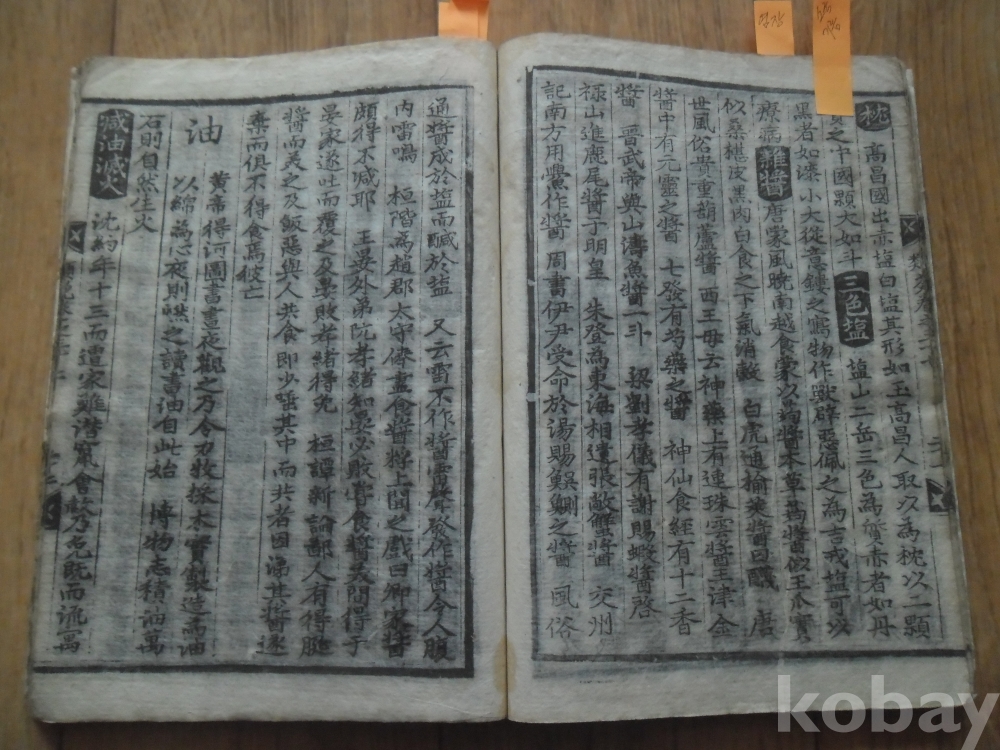 枕 高昌國出赤塩白塩其形如玉高昌人取以為枕以一顆
貢之中國顆大如斗 三色塩 塩山二岳三色為質赤者如丹
黑者如漆小大從意鏤之寫物作獸辟惡佩之為吉戎塩可以
療病 雜醬 唐蒙風曉南越食蒙以蒟醬本草蒟醬似王瓜實
似桑椹皮黑肉白食之下氣消穀 白虎通榆莢醬曰 唐
世風俗貴重葫蘆醬 西王母云神藥上有連珠雲醬玉津金
醬中有元靈之醬 七發有芍藥之醬 神仙食經有十二香
醬 晋武帝與山濤魚醬一斗 梁劉孝儀有謝賜蝦醬啓
祿山進鹿尾醬于明皇 朱登為東海相遺張敞蟹醬 交州
記南方用作醬 周書伊尹受命於湯賜鰂之醬 風俗
通醬成於塩而醎於塩 又云雷不作醬雷聲發作醬令人腹
內雷鳴 桓階為趙郡太守俸盡食醬將上聞之戲曰卿家醬
頗得不減耶 王晏外弟阮孝緒知晏必敗嘗食醬美問得于
晏家遂吐而覆之及晏敗孝緒得免 桓譚新論鄙人有得
醬而美之及飯惡與人共食即少唾其中而共者因涕其醬遂
棄而俱不得食焉彼亡
油 黃帝得河圖書晝夜觀之乃令力牧採木實製造為油
以綿為心夜則燃之讀書油自此始 博物志積油萬
石則自然生火
減油滅火 沈約年十三而遭家難潛竄會赦乃免既而流寓
kobay